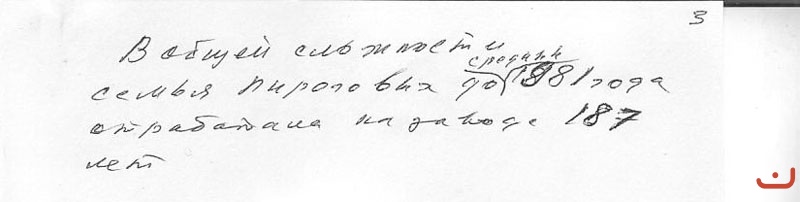 3
В общей сложности
средины
семья Пироговых до 1981 года
отработала на заводе 187
лет